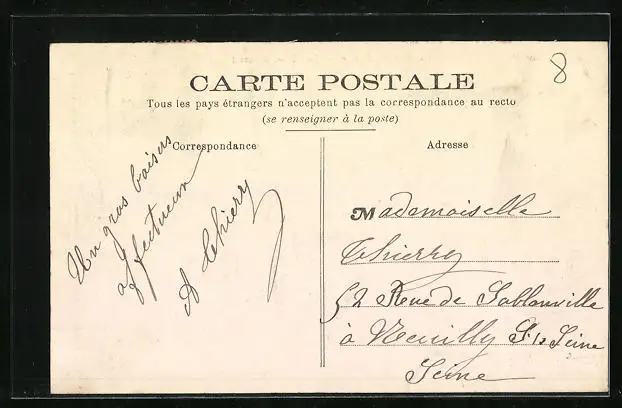 8
CARTE POSTALE
Tous les pays étrangers n'acceptent pas la correspondance au recto
(se renseigner à la poste)
Correspondance
Un gros baisers
affectueux
A Thierry
Adresse
Mademoiselle
Thierry
52 Rue de Sablonville
à Neuilly S/s Seine
Seine